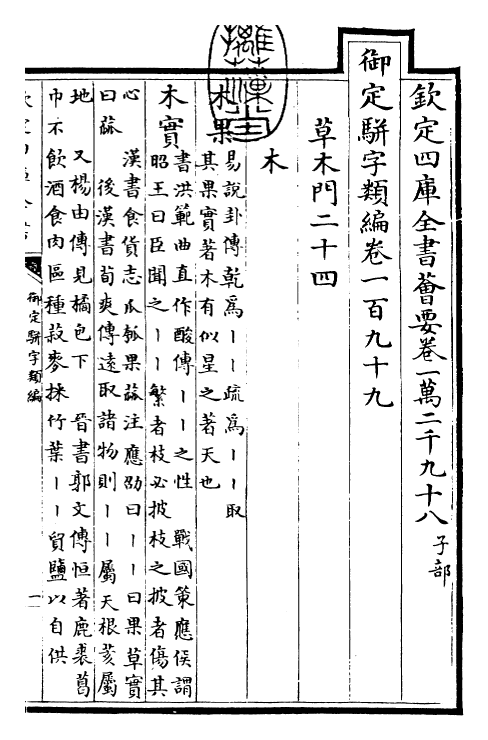 欽定四庫全書薈要卷一萬二千九十八 子部
御定駢字類編卷一百九十九
草木門二十四
木
木果
易說卦傳乾為丨丨疏為丨丨取
其果實著木有似星之著天也
木實
書洪範曲直作酸傳丨丨之性 戰國策應侯謂
昭王曰臣聞之丨丨繁者枝必披枝之披者傷其
心 漢書食貨志瓜瓠果蓏注應劭曰丨丨曰果草實
曰蓏 後漢書荀爽傳遠取諸物則丨丨屬天根荄屬
地 又楊由傳見橘包下 晉書郭文傳恒著鹿裘葛
巾不飲酒食肉區種菽麥採竹葉丨丨貿鹽以自供
御定駢字類編
一